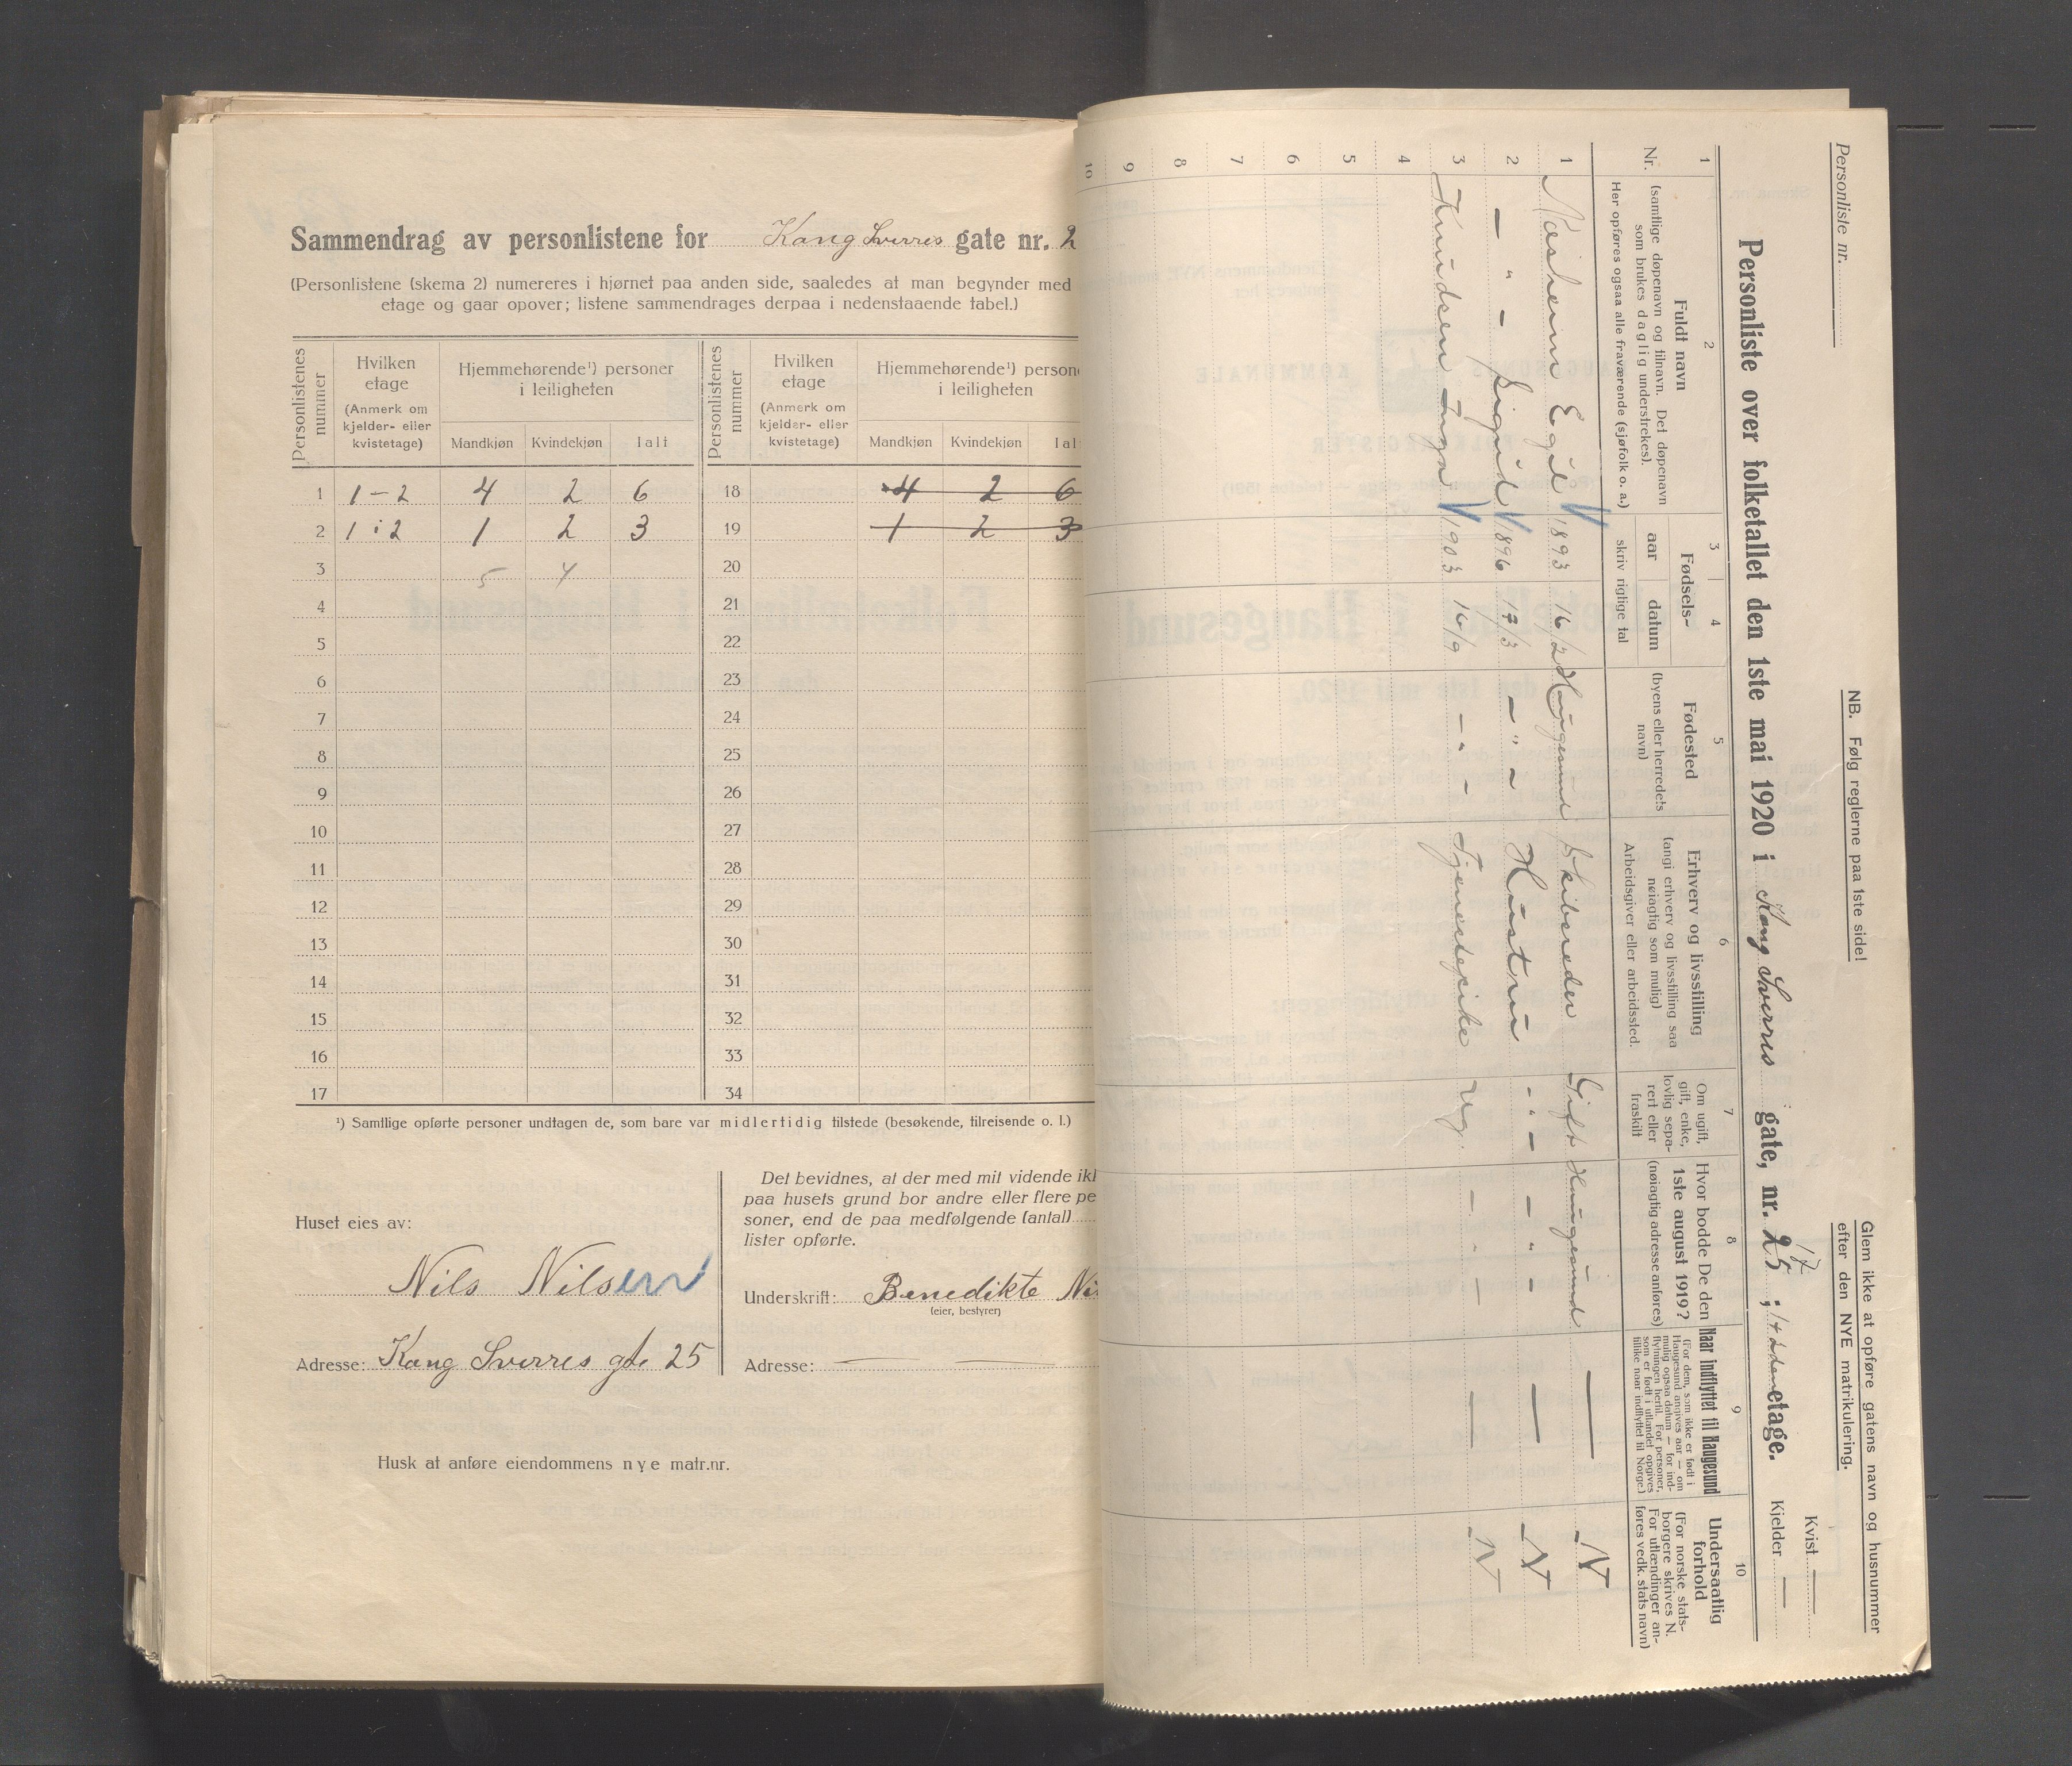 Sammendrag av personlistene for Kong Sverres gate nr. 2
(Personlistene (skema 2) numereres i hjørnet paa anden side, saaledes at man begynder med
etage og gaar opover; listene sammendrages derpaa i nedenstaaende tabel.)
Personlistenes nummer
Hvilken etage (Anmerk om kjelder- eller kvistetage)
Hjemmehørende¹) personer i leiligheten
Mandkjøn Kvindekjøn Ialt
Personlistenes nummer
Hvilken etage (Anmerk om kjelder- eller kvistetage)
Hjemmehørende¹) person
i leiligheten
Mandkjøn Kvindekjøn Ial
1 1-2 4 2 6 18 4 2 6
2 1 i 2 1 2 3 19 1 2 3
3 5 4 20
4 21
5 22
6 23
7 24
8 25
9 26
10 27
11 28
12 29
13 30
14 31
15 32
16 33
17 34
¹) Samtlige opførte personer undtagen de, som bare var midlertidig tilstede (besøkende, tilreisende o. l.)
Huset eies av:
Nils Nilsen
Adresse: Kong Sverres gte 25
Det bevidnes, at der med mit vidende ik
paa husets grund bor andre eller flere pe
soner, end de paa medfølgende (antal)
lister opførte.
Underskrift: Benedikte Ni
(eier, bestyrer)
Adresse: — —
Husk at anføre eiendommens nye matr.nr.
Personliste nr.
NB. Følg reglerne paa 1ste side!
Glem ikke at opføre gatens navn og husnummer
efter den NYE matrikulering.
Personliste over folketallet den 1ste mai 1920 i Kong Sverres gate, nr. 25; etage.
17
Kvist —
Kjelder —
1 2 3 4 5 6 7 8 9 10
Nr.
Fuldt navn
(samtlige døpenavn og tilnavn. Det døpenavn
som brukes daglig understrekes).
Her opføres ogsaa alle fraværende (sjøfolk o. a.)
Fødsels-
aar datum
skriv riglige tal
Fødested
(byens eller herredets
navn)
Erhverv og livsstilling
(angi erhverv og livsstilling saa
nøiagtig som mulig)
Arbeidsgiver eller arbeidssted.
Om ugift,
gift, enke,
lovlig sepa-
rert eller
fraskilt
Hvor bodde De den
1ste august 1919?
(nøiagtig adresse anføres)
Naar indflyttet til Haugesund
(For dem, som ikke er født i
Haugesund angives aar — om
mulig ogsaa datum — for ind-
flytningen hertil. For personer,
som er født i utlandet opgives
tillike naar indflyttet til Norge.)
Undersaatlig
forhold
(For norske stats-
borgere skrives N.
For utlændinger an-
føres vedk. stats navn)
1 Næsheim Egil 1893 16/2 Haugesund Skibsreder Gift Haugesund — N
2 — " — Sigrid 1896 17/3 — " — Hustru — " — — " — — N
3 Knudsen Inga 1903 14/9 — " — Tjenestepike Ug. — " — — N
4
5
6
7
8
9
10